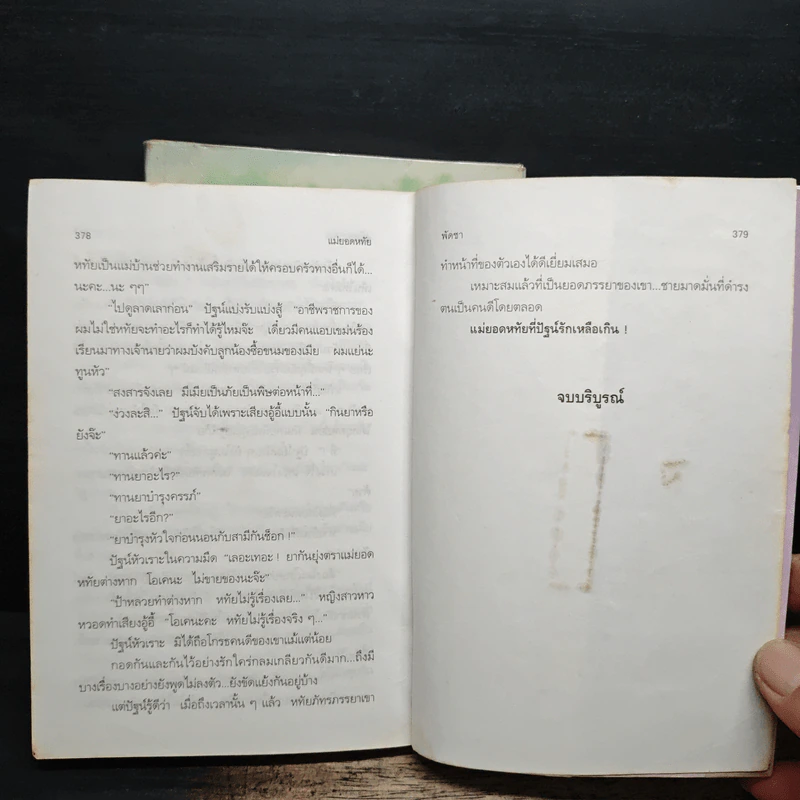 378
แม่ยอดหทัย
หทัยเป็นแม่บ้านช่วยทำงานเสริมรายได้ให้ครอบครัวทางอื่นก็ได้...
นะคะ...นะ ๆๆ"
"ไปดูลาดเลาก่อน" ปัฐน์แบ่งรับแบ่งสู้ "อาชีพราชการของ
ผมไม่ใช่หทัยจะทำอะไรก็ทำได้รู้ไหมจ๊ะ เดี๋ยวมีคนแอบเขม่นร้อง
เรียนมาทางเจ้านายว่าผมบังคับลูกน้องซื้อขนมของเมีย ผมแย่นะ
ทูนหัว"
"สงสารจังเลย มีเมียเป็นภัยเป็นพิษต่อหน้าที่..."
"ง่วงละสิ..." ปัฐน์จับได้เพราะเสียงอู้อี้แบบนั้น "กินยาหรือ
ยังจ๊ะ"
"ทานแล้วค่ะ"
"ทานยาอะไร?"
"ทานยาบำรุงครรภ์"
"ยาอะไรอีก?"
"ยาบำรุงหัวใจก่อนนอนกับสามีกันช็อก !"
ปัฐน์หัวเราะในความมืด "เลอะเทอะ ! ยากันยุ่งตราแม่ยอด
หทัยต่างหาก โอเคนะ ไม่ขายของนะจ๊ะ"
"ป้าหลวยทำต่างหาก หทัยไม่รู้เรื่องเลย..." หญิงสาวหาว
หวอดทำเสียงอู้อี้ "โอเคนะคะ หทัยไม่รู้เรื่องจริง ๆ..."
ปัฐน์หัวเราะ มิได้ถือโกรธคนดีของเขาแม้แต่น้อย
กอดกันและกันไว้อย่างรักใคร่กลมเกลียวกันดีมาก...ถึงมี
บางเรื่องบางอย่างยังพูดไม่ลงตัว...ยังขัดแย้งกันอยู่บ้าง
แต่ปัฐน์รู้ดีว่า เมื่อถึงเวลานั้น ๆ แล้ว หทัยภัทรภรรยาเขา
พัดชา
379
ทำหน้าที่ของตัวเองได้ดีเยี่ยมเสมอ
เหมาะสมแล้วที่เป็นยอดภรรยาของเขา...ชายมาดมั่นที่ดำรง
ตนเป็นคนดีโดยตลอด
แม่ยอดหทัยที่ปัฐน์รักเหลือเกิน !
จบบริบูรณ์